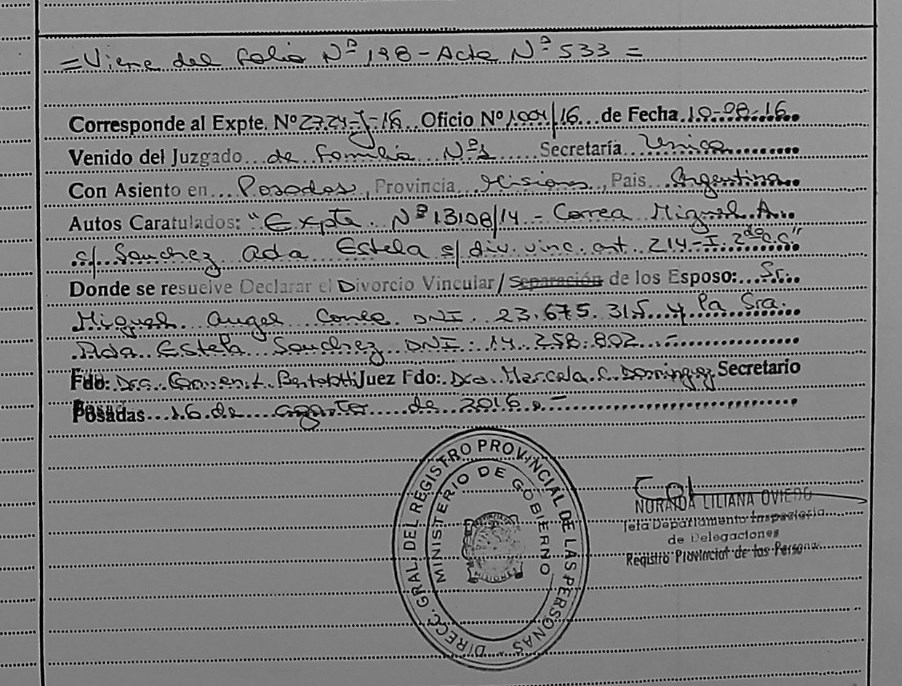 = Viene del folio Nº 198 - Acta Nº 533 =
Corresponde al Expte. Nº 2724-J-16 Oficio Nº 1001/16 de Fecha 10-08-16
Venido del Juzgado de Familia Nº 1 Secretaría Unica
Con Asiento en Posadas, Provincia Misiones, Pais Argentina
Autos Caratulados: "Expte. Nº 13108/14 - Correa Miguel A.
c/ Sanchez Ada Estela s/ div. vinc. art. 214-I 2do C.C"
Donde se resuelve Declarar el Divorcio Vincular/Separación de los Esposo: Sr.
Miguel Angel Correa DNI 23.675.315 y la Sra.
Ada Estela Sanchez DNI: 14.258.802 -
Fdo: Dra. Carmen L. Bertolotti Juez Fdo: Dra. Marcela C. Dominguez Secretario
Posadas 16 de agosto de 2016 -
DIRECC. GRAL. DEL REGISTRO PROVINCIAL DE LAS PERSONAS
MINISTERIO DE GOBIERNO
MISIONES
NORAIDA LILIANA OVIEDO
Jefa Departamento Inspectoría
de Delegaciones
Registro Provincial de las Personas